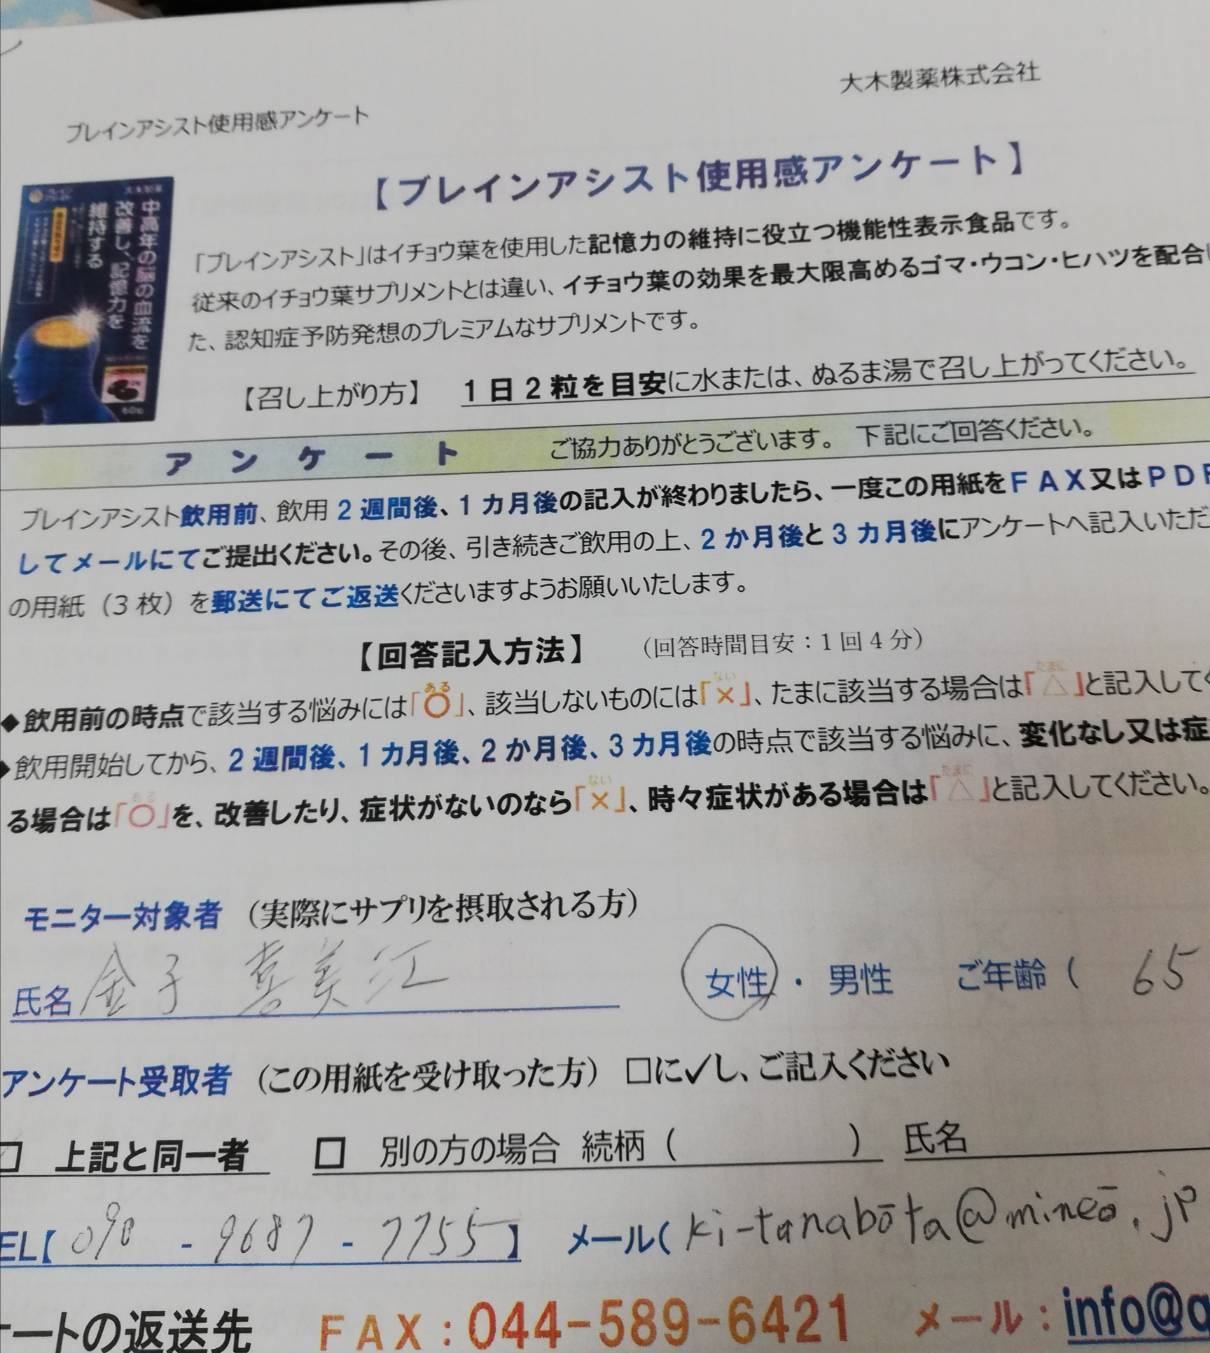 大木製薬株式会社
ブレインアシスト使用感アンケート
【ブレインアシスト使用感アンケート】
中高年の脳の血流を
改善し、記憶力を
維持する
「ブレインアシスト」はイチョウ葉を使用した記憶力の維持に役立つ機能性表示食品です。
従来のイチョウ葉サプリメントとは違い、イチョウ葉の効果を最大限高めるゴマ・ウコン・ヒハツを配合し
た、認知症予防発想のプレミアムなサプリメントです。
【召し上がり方】 1日2粒を目安に水または、ぬるま湯で召し上がってください。
アンケート ご協力ありがとうございます。 下記にご回答ください。
ブレインアシスト飲用前、飲用2週間後、1カ月後の記入が終わりましたら、一度この用紙をFAX又はPDF
してメールにてご提出ください。その後、引き続きご飲用の上、2か月後と3カ月後にアンケートへ記入いただ
の用紙（3枚）を郵送にてご返送くださいますようお願いいたします。
【回答記入方法】 （回答時間目安：1回4分）
◆飲用前の時点で該当する悩みには「〇」、該当しないものには「×」、たまに該当する場合は「△」と記入して
◆飲用開始してから、2週間後、1カ月後、2か月後、3カ月後の時点で該当する悩みに、変化なし又は症
る場合は「〇」を、改善したり、症状がないのなら「×」、時々症状がある場合は「△」と記入してください。
モニター対象者 （実際にサプリを摂取される方）
氏名 金子 喜美江 女性 ・ 男性 ご年齢（ 65
アンケート受取者 （この用紙を受け取った方） □に✓し、ご記入ください
□ 上記と同一者 □ 別の方の場合 続柄（ ） 氏名
EL【090 - 9687 - 7755】 メール（ki-tanabōta@mineō.jp
ートの返送先 FAX：044-589-6421 メール：info@